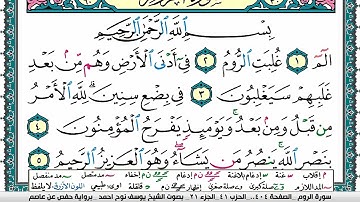 بِسْمِ ٱللَّهِ ٱلرَّحْمَٰنِ ٱلرَّحِيمِ
الٓمٓ ١ غُلِبَتِ ٱلرُّومُ ٢ فِىٓ أَدْنَى ٱلْأَرْضِ وَهُم مِّنۢ بَعْدِ
غَلَبِهِمْ سَيَغْلِبُونَ ٣ فِى بِضْعِ سِنِينَ ۗ لِلَّهِ ٱلْأَمْرُ
مِن قَبْلُ وَمِنۢ بَعْدُ ۚ وَيَوْمَئِذٍ يَفْرَحُ ٱلْمُؤْمِنُونَ ٤
بِنَصْرِ ٱللَّهِ ۚ يَنصُرُ مَن يَشَآءُ ۖ وَهُوَ ٱلْعَزِيزُ ٱلرَّحِيمُ ٥
سورة الروم الصفحة ٤٠٤ الحزب ٤١ الجزء ٢١ بصوت الشيخ يوسف نوح احمد رواية حفص عن عاصم